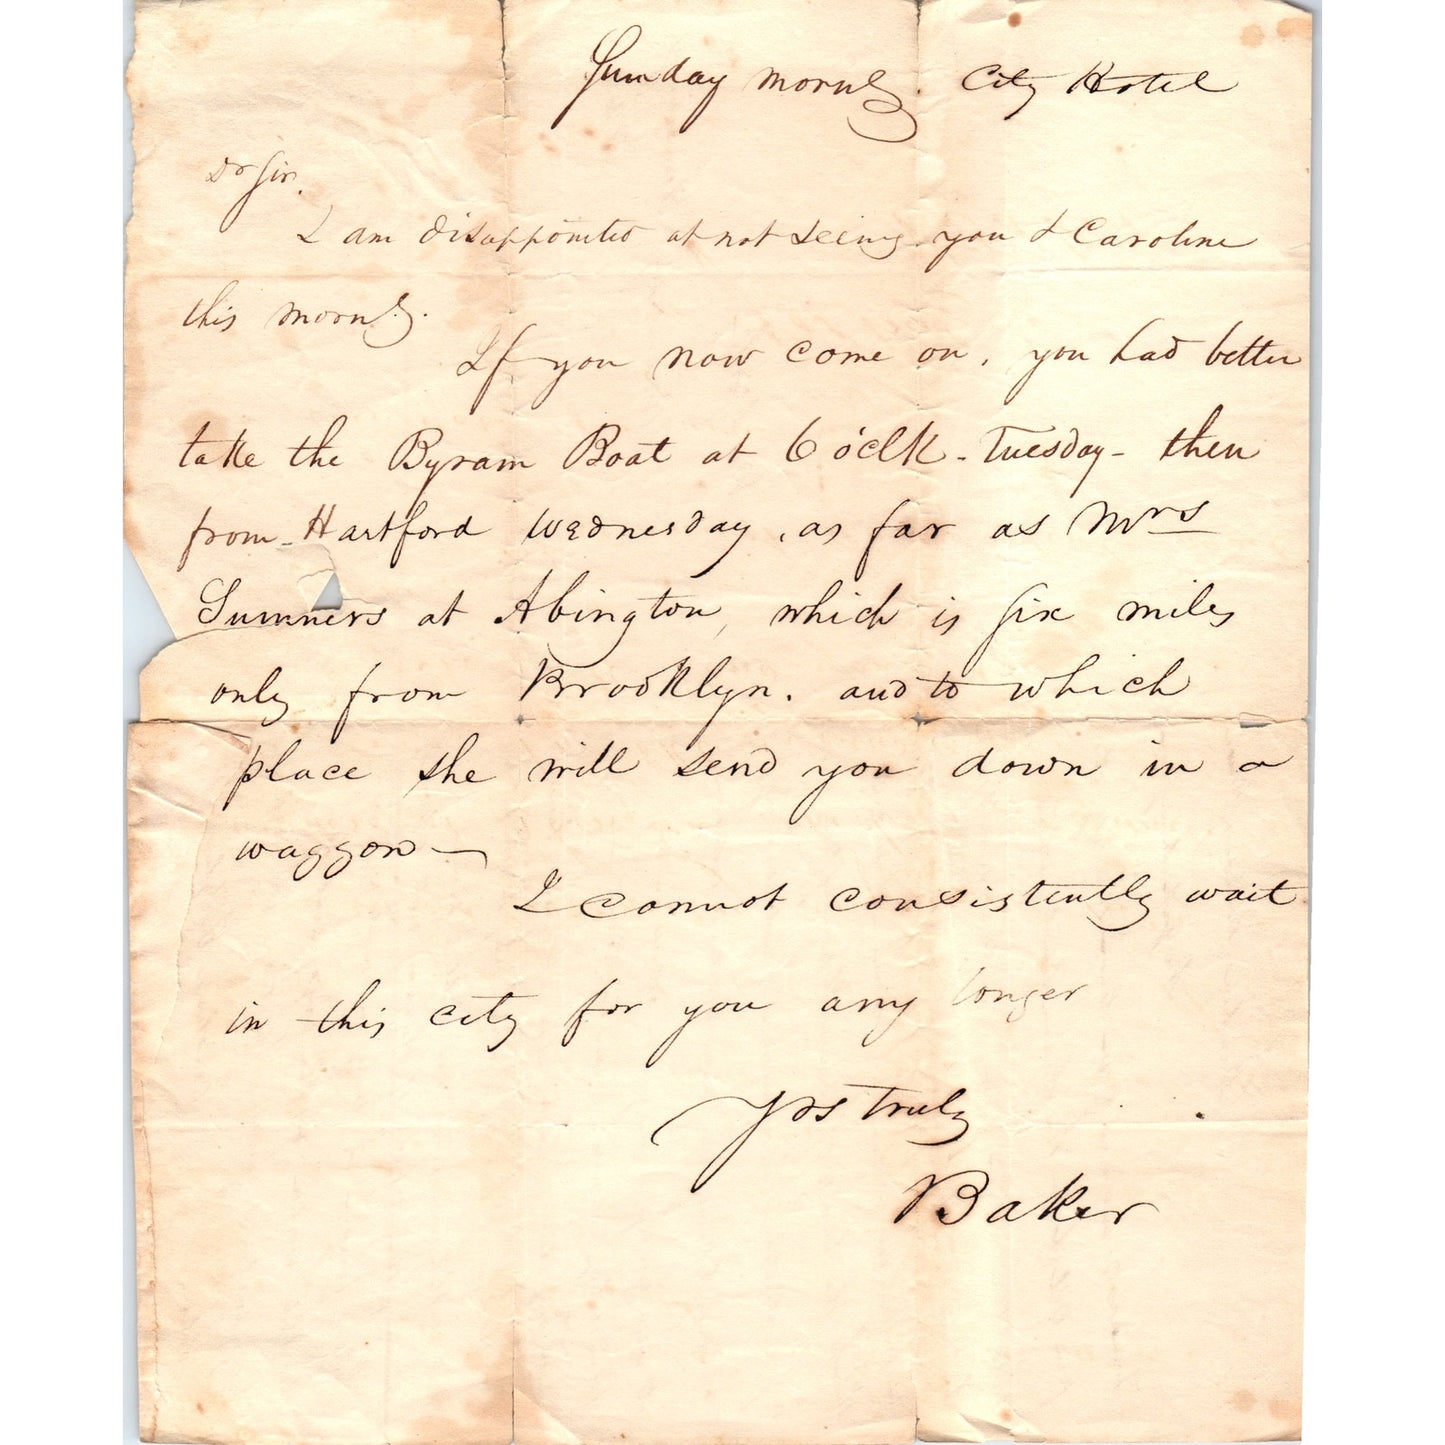 Sunday Morng. City Hotel
Dr Sir.
I am disappointed at not seeing you & Caroline
this morng.
If you now come on, you had better
take the Byram Boat at 6 o'clk - Tuesday - then
from Hartford Wednesday, as far as Mrs
Sumners at Abington, which is six miles
only from Brooklyn. and to which
place she will send you down in a
waggon —
I cannot consistently wait
in this city for you any longer
Yrs Truly
Baker